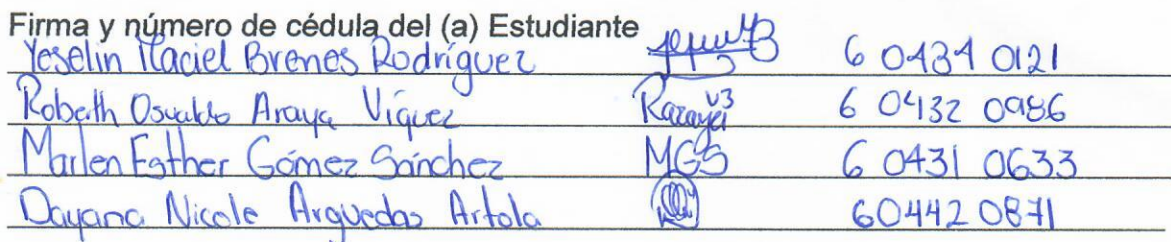 Firma y número de cédula del (a) Estudiante
Yeselin Maciel Brenes Rodríguez 6 0434 0121
Robeth Osvaldo Araya Víquez 6 0432 0986
Marlen Esther Gómez Sánchez MGS 6 0431 0633
Dayana Nicole Arguedas Artola 60442 0871